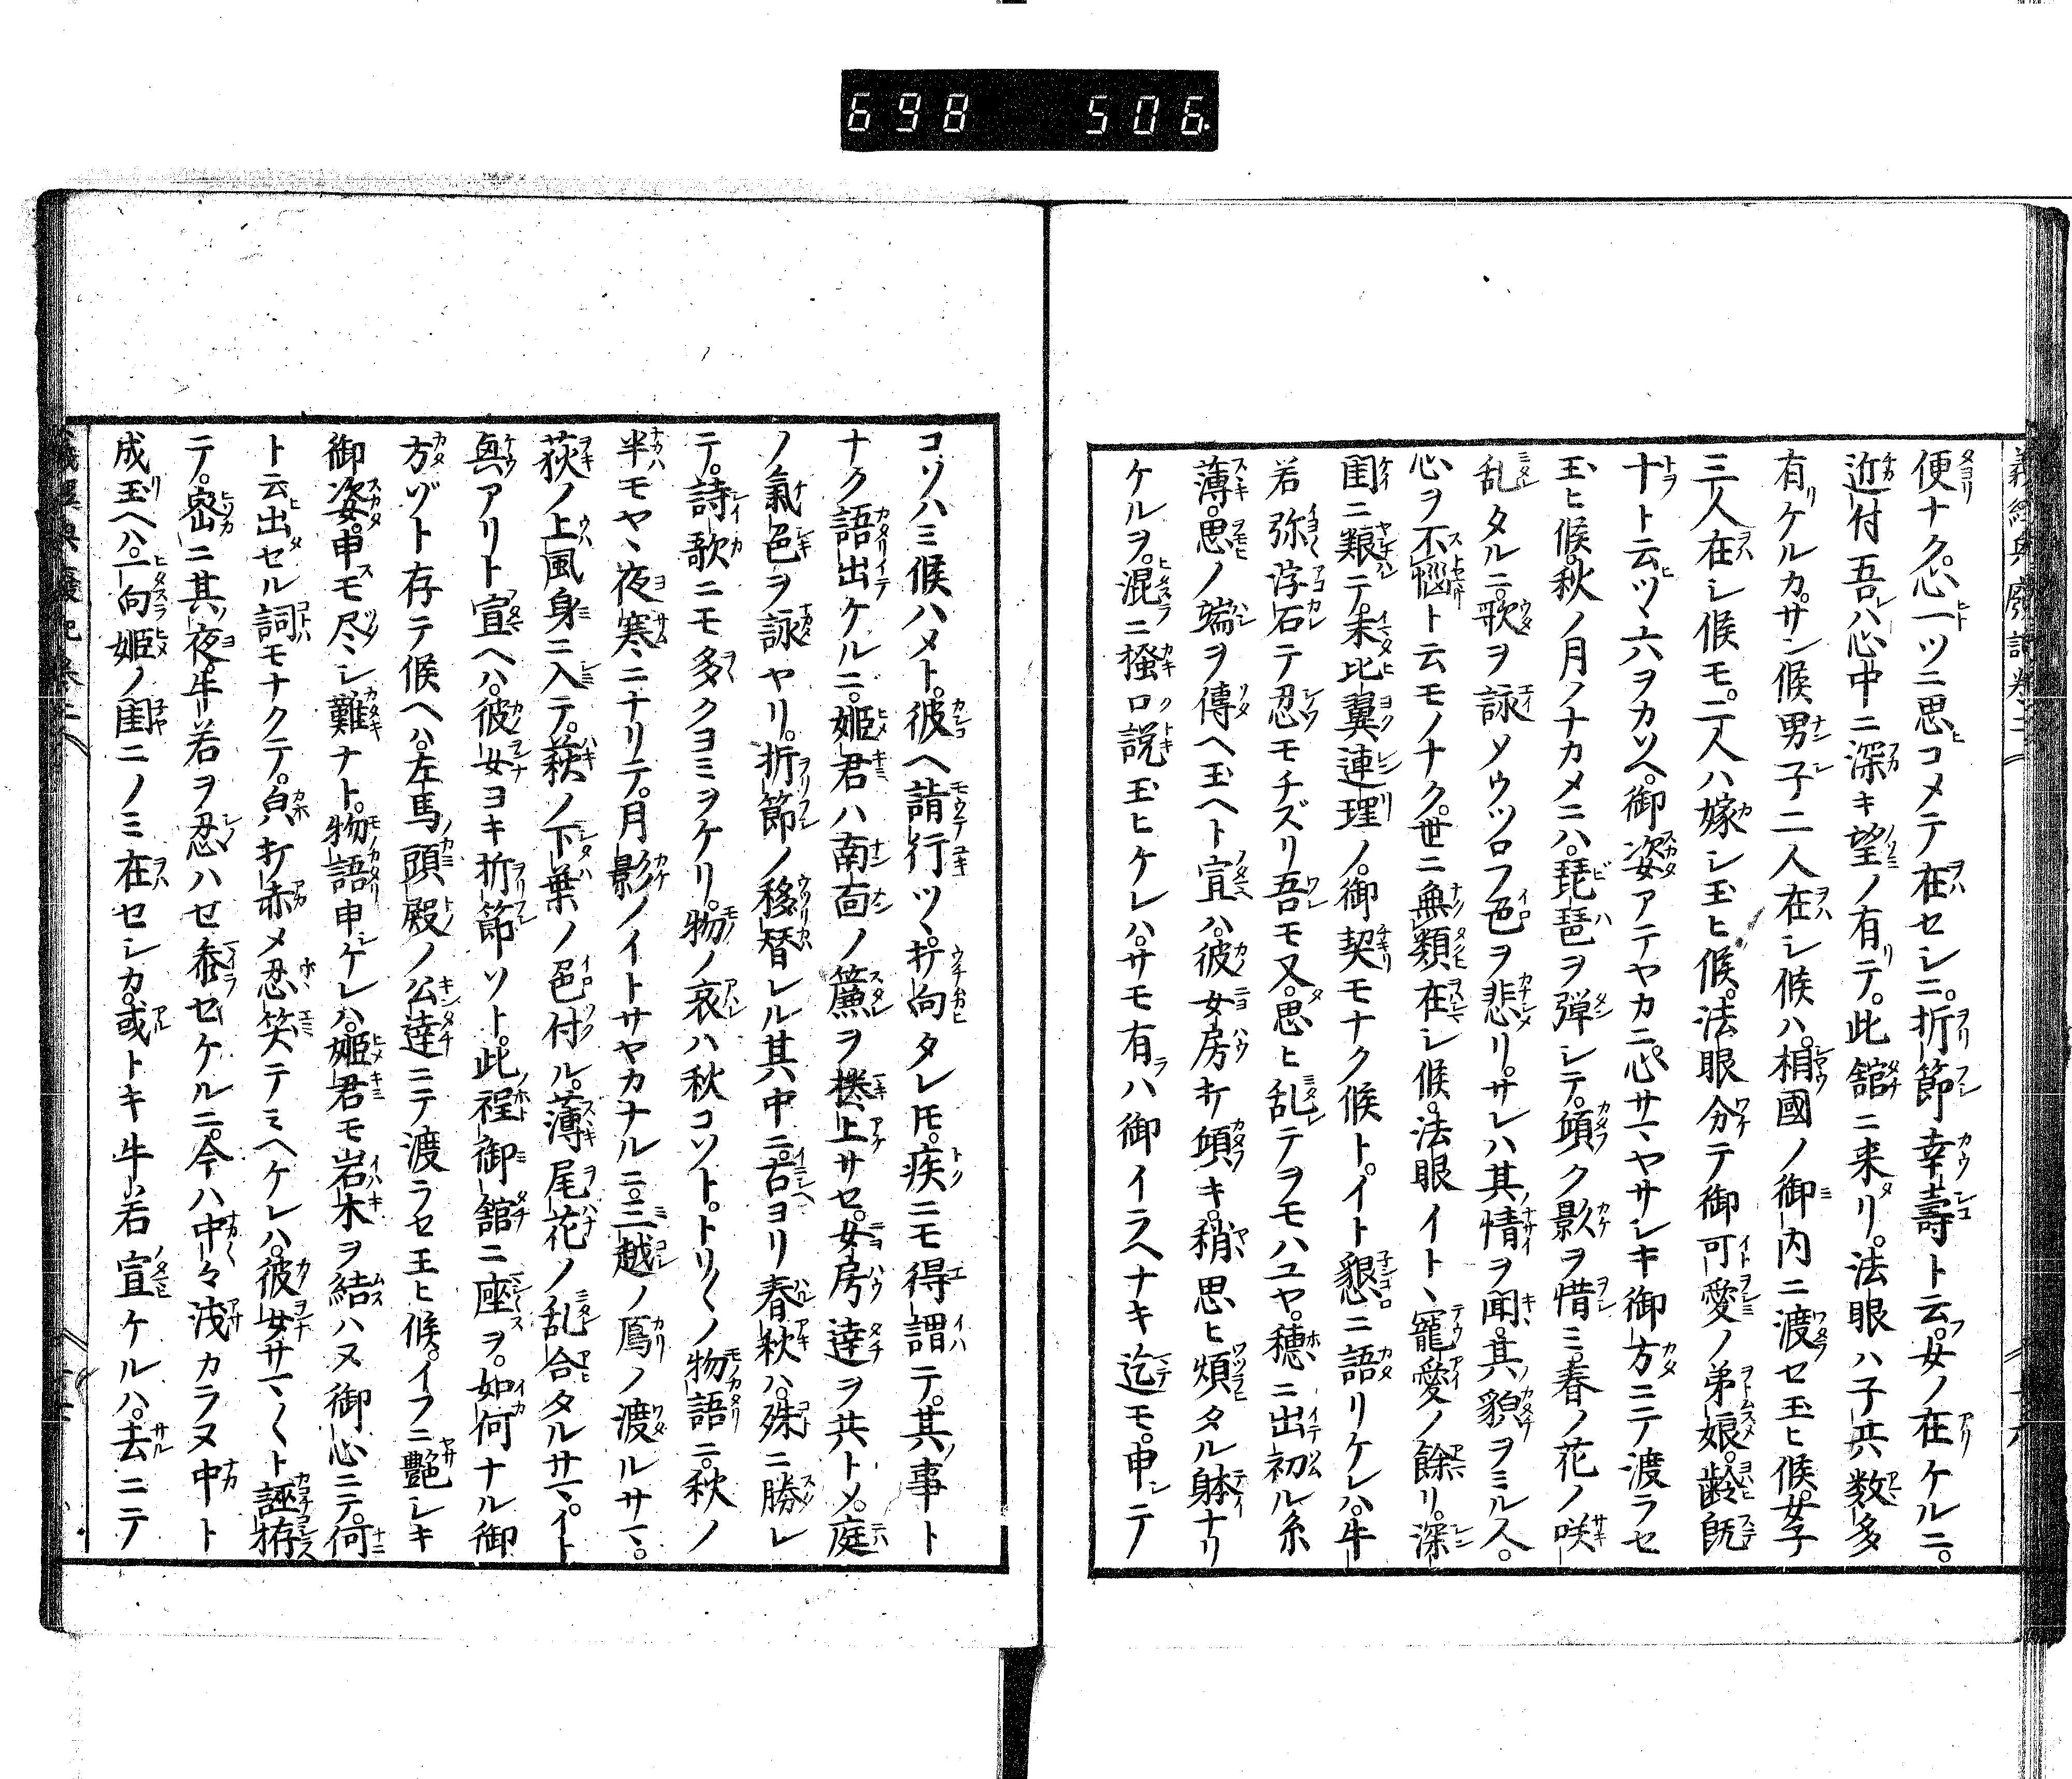 698 506
便ナク。心一ツニ思コメテ在セシニ。折節幸壽ト云。女ノ在ケルニ。
近付吾ハ心中ニ深キ望ノ有テ。此舘ニ来リ。法眼ハ子共数多
有ケルカ。サン候男子二人在シ候ハ。相國ノ御内ニ渡セ玉ヒ候。女子
三人在シ候モ。二人ハ嫁シ玉ヒ候。法眼分テ御可愛ノ弟娘。齢既
十ト云ツヽ六ヲカソヘ。御姿アテヤカニ。心サマヤサシキ御方ニテ渡ラセ
玉ヒ候。秋ノ月ノナカメニハ。琵琶ヲ弾シテ。傾ク影ヲ惜ミ。春ノ花ノ咲
乱タルニ。歌ヲ詠ソウツロフ色ヲ悲リ。サレハ其情ヲ聞。其貌ヲミル人。
心ヲ不惱ト云モノナク。世ニ無類在シ候。法眼イトヽ寵愛ノ餘リ。深
閨ニ粮テ。未比翼連理ノ。御契モナク候ト。イト懇ニ語リケレハ。牛
若弥浮石テ忍モチズリ吾モ又。思ヒ乱テヲモハユヤ。穂ニ出初ル糸
薄。思ノ端ヲ傳ヘ玉ヘト宣ハ。彼女房打傾キ。稍思ヒ煩タル躰ナリ
ケルヲ。混ニ掻口説玉ヒケレハ。サモ有ハ御イラヘナキ迄モ。申シテ
コソハミ候ハメト。彼ヘ詣行ツヽ打向タレ𪜈。疾ニモ得謂テ。其事ト
ナク語出ケルニ。姫君ハ南面ノ簾ヲ捲上サセ。女房達ヲ共トメ。庭
ノ氣色ヲ詠ヤリ。折節ノ移替レル其中ニ。古ヨリ春秋ハ。殊ニ勝レ
テ。詩歌ニモ多クヨミヲケリ。物ノ哀ハ秋コソト。トリ〱ノ物語ニ。秋ノ
半モヤヽ夜寒ニナリテ。月影ノイトサヤカナルニ。三越ノ鴈ノ渡ルサマ。
荻ノ上風身ニ入テ。萩ノ下葉ノ色付ル。薄尾花ノ乱合タルサマ。イト
興アリト宣ヘハ。彼女ヨキ折節ソト。此程御舘ニ座ヲ。如何ナル御
方ゾト存テ候ヘハ。左馬頭殿ノ公達ニテ渡ラセ玉ヒ候。イフニ艶シキ
御姿。申モ尽シ難ナト。物語申ケレハ。姫君モ岩木ヲ結ハヌ御心ニテ。何
ト云出セル詞モナクテ。皃打赤メ忍笑テミヘケレハ。彼女サマ〱ト誘拵
テ。密ニ其夜。牛若ヲ忍ハセ忝セケルニ。今ハ中々浅カラヌ中ト
成玉ヘハ。一向姫ノ閨ニノミ在セシカ。或トキ牛若宣ケルハ。去ニテ